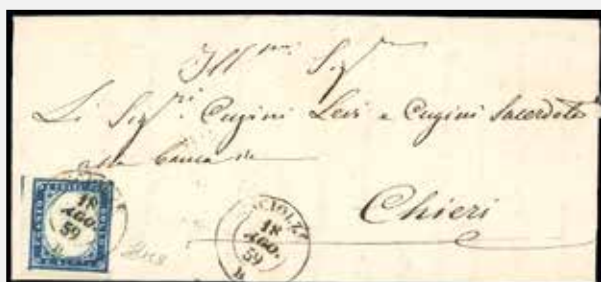 Ill.mi Sig.ri
Li Sig.ri Cugini Levi e Cugini Sacerdote
Chieri
18
AGO.
59
18
AGO.
59